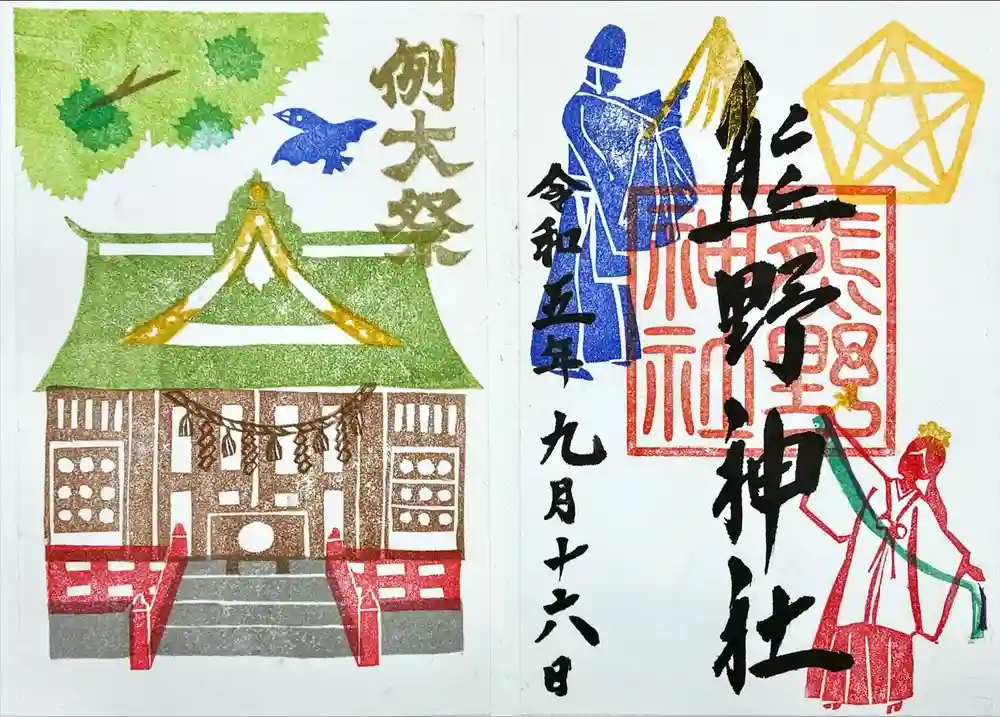 例大祭
熊野神社
熊野神社
令和五年九月十六日